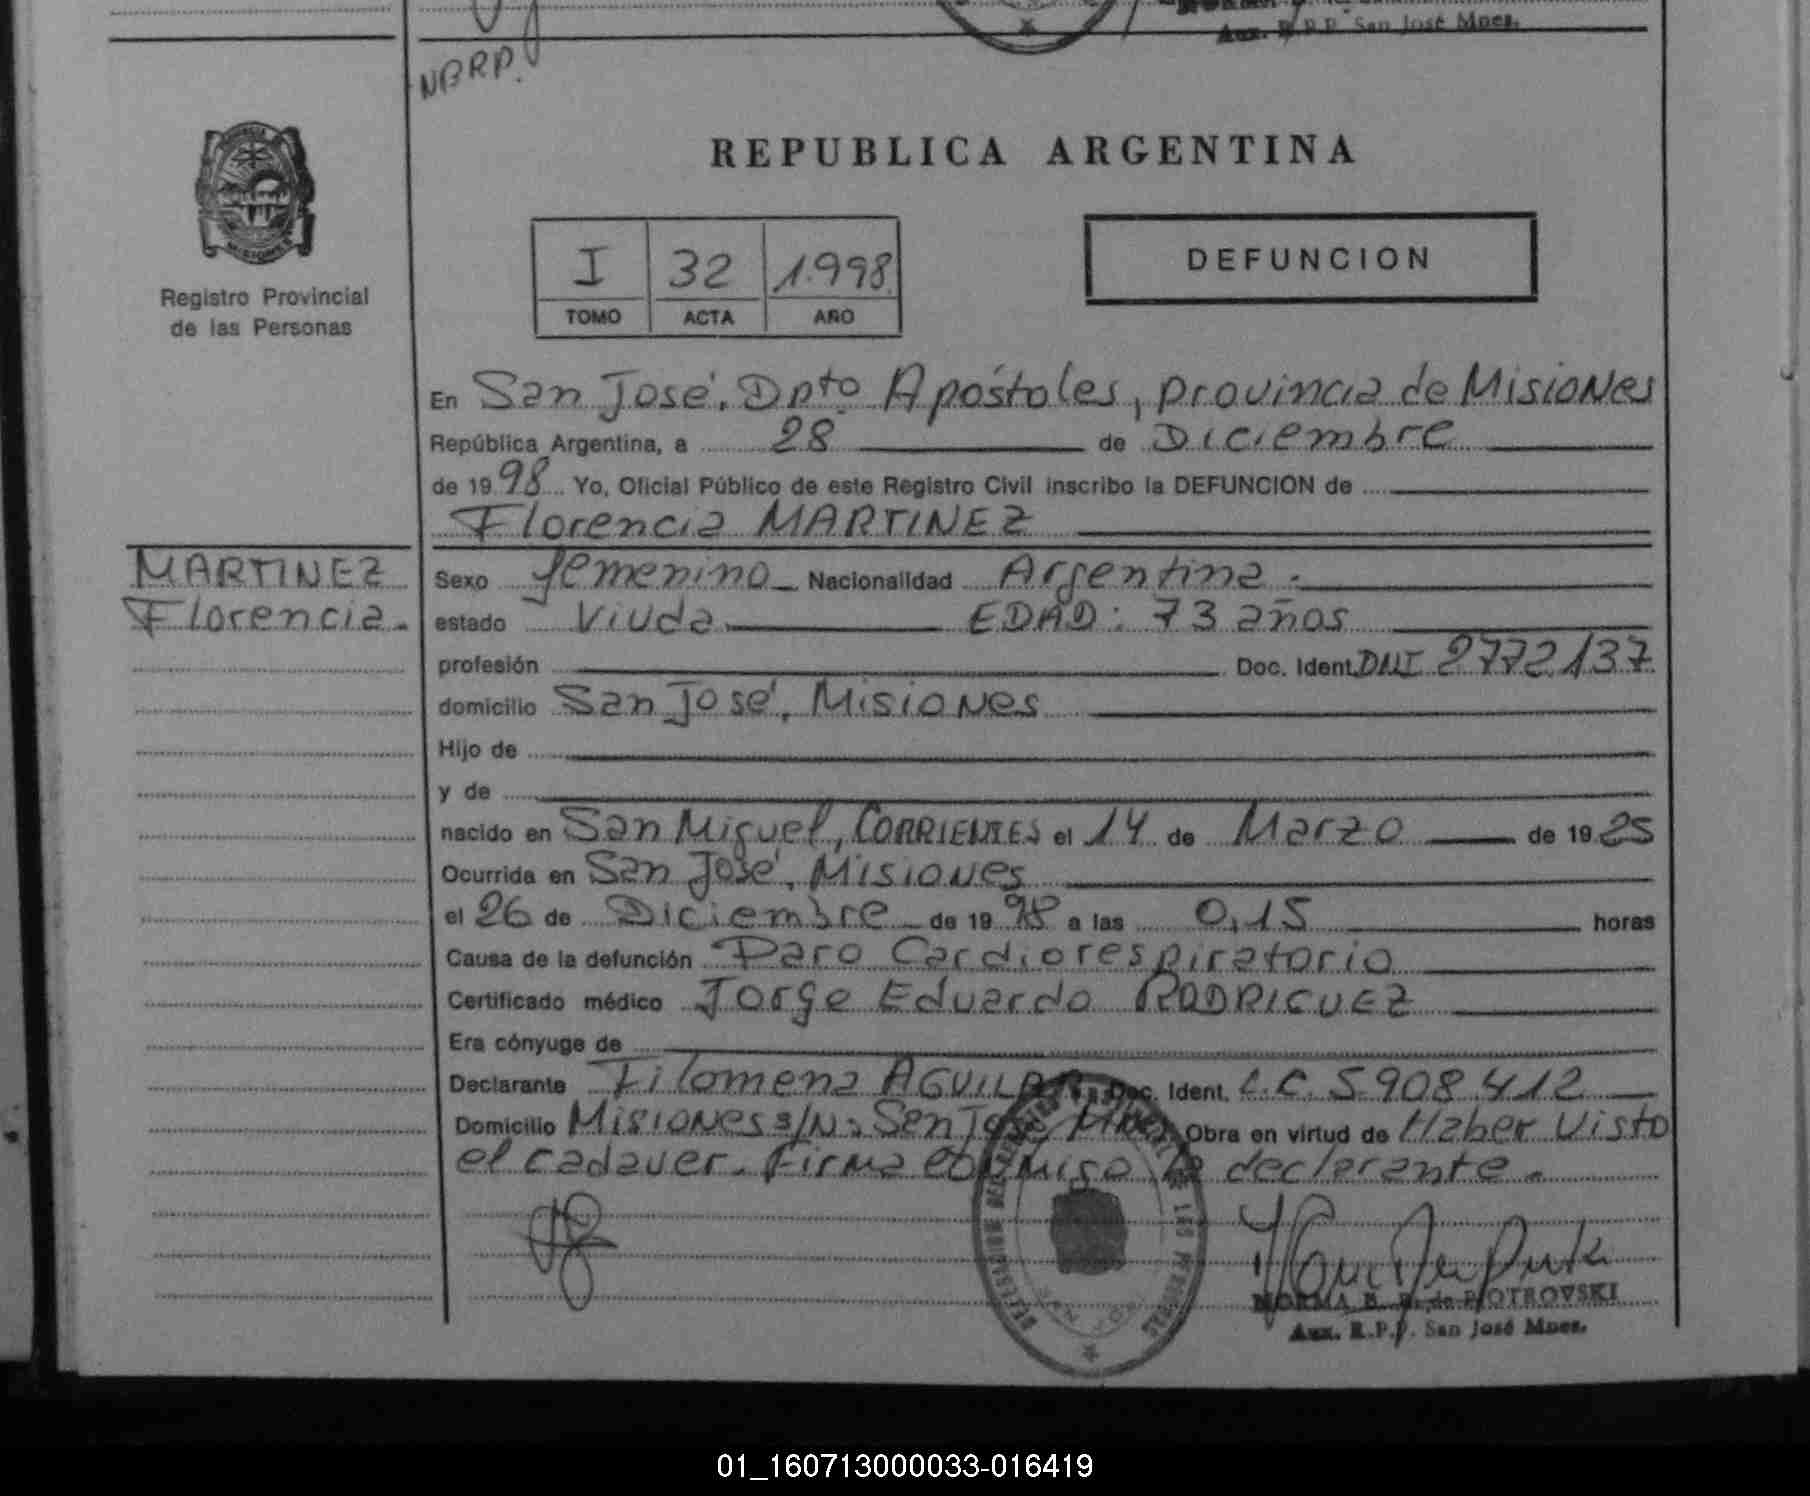 Aux. R.P.P. San José Mnes.
NBRP.
REPUBLICA ARGENTINA
Registro Provincial
de las Personas
I 32 1.998
TOMO ACTA AÑO
DEFUNCION
En San José. Dpto Apóstoles, provincia de Misiones
República Argentina, a 28 de Diciembre
de 1998 Yo, Oficial Público de este Registro Civil inscribo la DEFUNCION de
Florencia MARTINEZ
MARTINEZ
Florencia.
Sexo femenino Nacionalidad Argentina.
estado Viuda EDAD: 73 años
profesión Doc. Ident. DNI 2.772.137
domicilio San José, Misiones
Hijo de
y de
nacido en San Miguel, CORRIENTES el 14 de Marzo de 1925
Ocurrida en San José, Misiones
el 26 de Diciembre de 1998 a las 0,15 horas
Causa de la defunción Paro Cardiorespiratorio
Certificado médico Jorge Eduardo RODRIGUEZ
Era cónyuge de
Declarante Filomena AGUILAR Doc. Ident. L.C. 5.908.412
Domicilio Misiones s/N: San José Mnes. Obra en virtud de Haber Visto
el cadaver. Firma conmigo la declarante.
NORMA B. R. de PIOTROVSKI
Aux. R.P.P. San José Mnes.
01_160713000033-016419